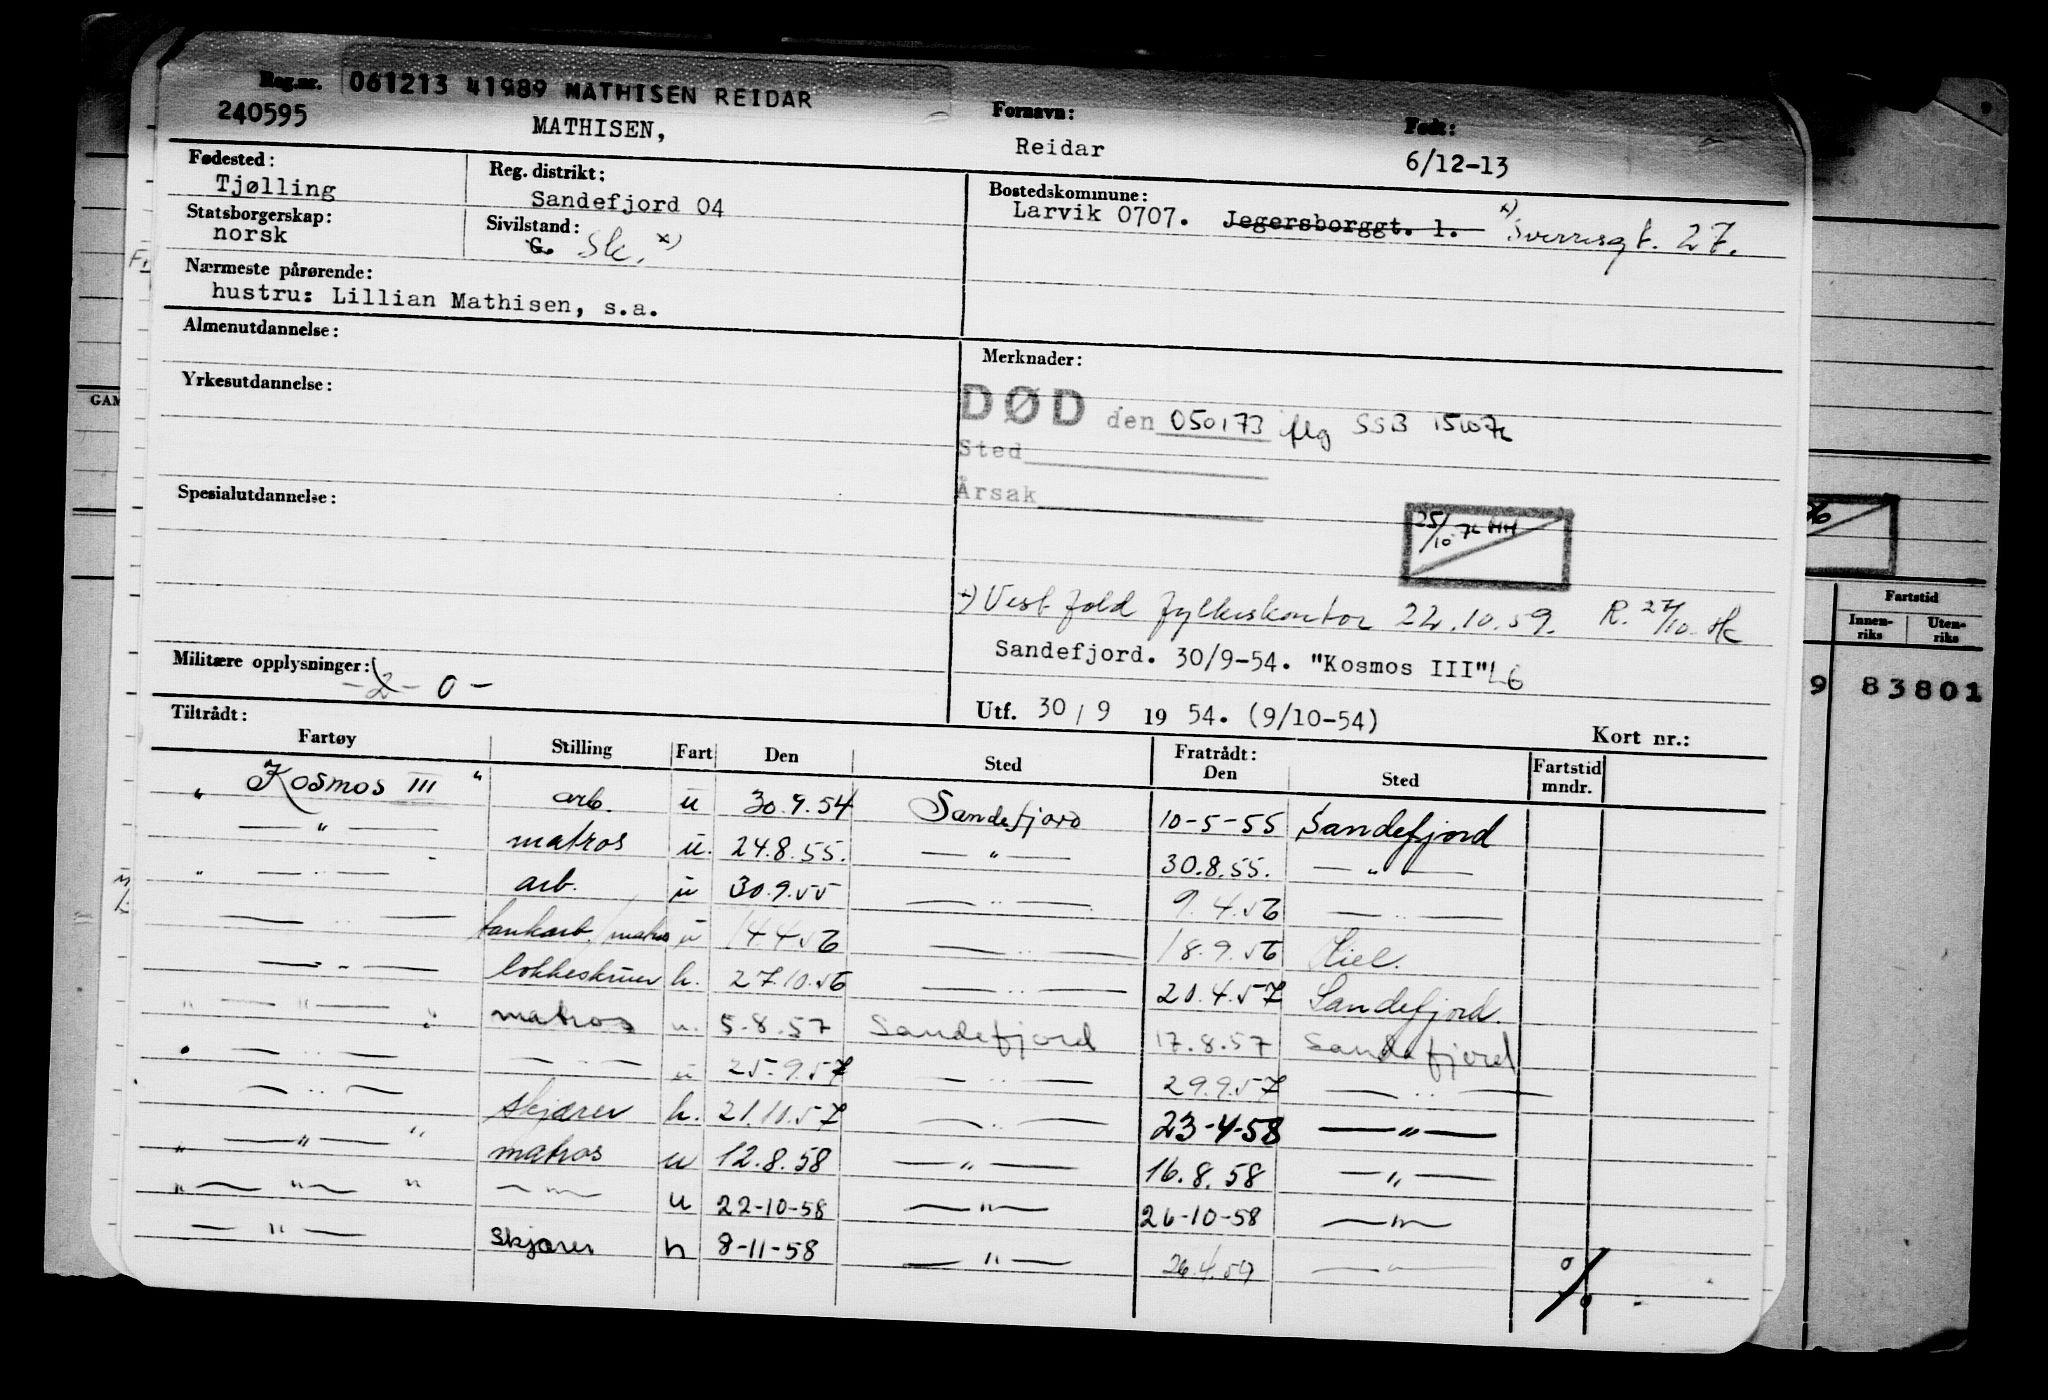 Reg.nr. 061213 41989 MATHISEN REIDAR
240595 MATHISEN, Fornavn: Reidar Født: 6/12-13
Fødested: Tjølling Reg. distrikt: Sandefjord 04 Bostedskommune: Larvik 0707. Jegersborggt. 1. x) Sverresgt. 27.
Statsborgerskap: norsk Sivilstand: G. Sk. x)
Nærmeste pårørende:
hustru: Lillian Mathisen, s.a.
Almenutdannelse:
Merknader:
Yrkesutdannelse:
DØD den 050173 flg SSB
Sted
Årsak
Spesialutdannelse:
25/10 76 HH
x) Vestfold fylkeskontor 22.10.59. R. 27/10
Sandefjord. 30/9-54. "Kosmos III" L6
Militære opplysninger: -2- 0 -
Utf. 30/9 1954. (9/10-54)
Kort nr.:
Tiltrådt: Fratrådt:
Fartøy Stilling Fart Den Sted Den Sted Fartstid mndr.
" Kosmos III " arb. u 30.9.54 Sandefjord 10-5-55 Sandefjord
— " — matros u. 24.8.55. — " — 30.8.55. — " —
" — " — arb. u 30.9.55 — " — 9.4.56 — " —
— " — tankarb./matros u 14.4.56 — " — 18.9.56 Kiel.
— " — lokkeskruer h. 27.10.56 — " — 20.4.57 Sandefjord.
" — " — " matros u. 5.8.57 Sandefjord 17.8.57 Sandefjord
— " — — " — u 25.9.57 — " — 29.9.57 — " —
— " — skjærer h. 21.10.57 — " — 23-4-58 — " —
" — " — " matros u 12.8.58 — " — 16.8.58 — " —
" — " — " — " — u 22-10-58 — " — 26-10-58 — " —
— " — skjærer h 8-11-58 — " — 26.4.59 — " —
GAM
Fartstid
Innenriks Utenriks
9 83801